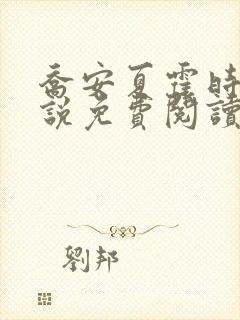 喬安夏霆時
說免費閱讀
劉邦